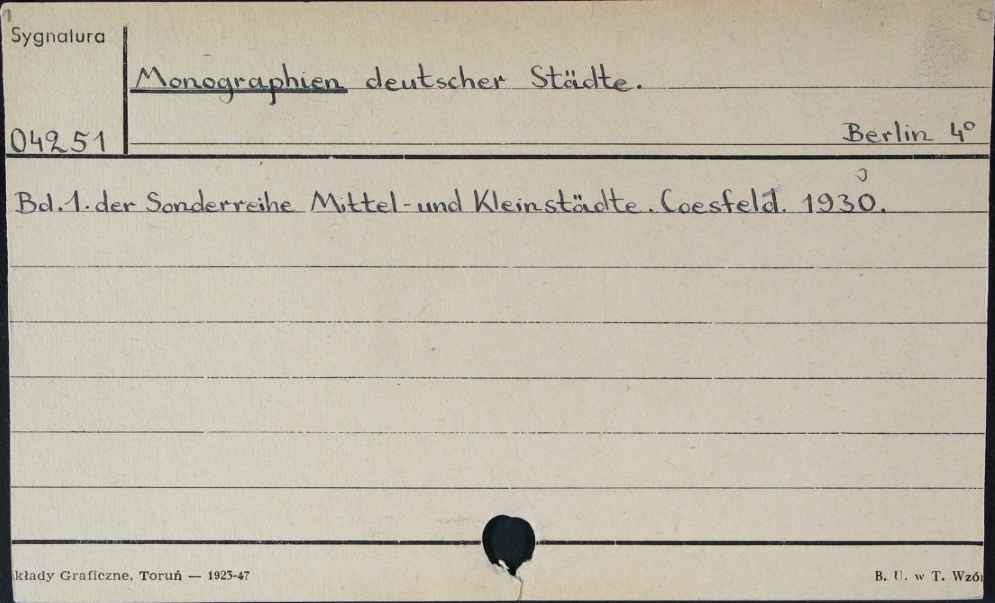 Sygnatura
Monographien deutscher Städte.
04251
Berlin 4°
Bd.1. der Sonderreihe Mittel- und Kleinstädte. Coesfeld. 1930.
kłady Graficzne, Toruń — 1923-47
B. U. w T. Wzó